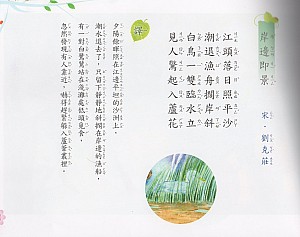 岸邊即景
宋．劉克莊
江頭落日照平沙
潮退漁舟擱岸斜
白鳥一雙臨水立
見人驚起入蘆花
譯
夕陽餘暉照在江邊平坦的沙洲上，
潮水退去了，只留下靜靜地斜擱在岸邊的漁船，
有一對白鷺鷥站在淺灘處低頭覓食，
忽然發現有人靠近，嚇得趕緊躲入蘆葦叢裡。